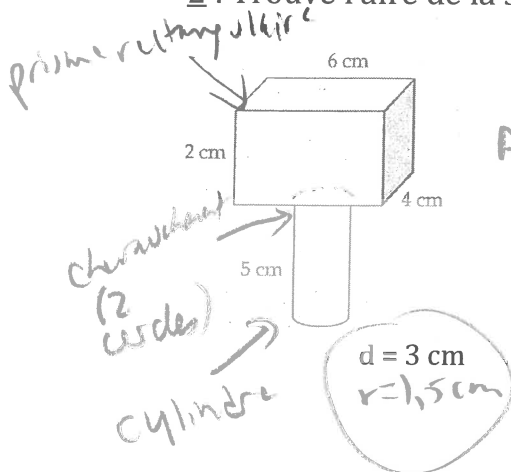 2. Trouve l'aire de la s
prisme rectangulaire
6 cm
2 cm
4 cm
chevauchement
(2
cercles)
5 cm
cylindre
d = 3 cm
r=1,5cm